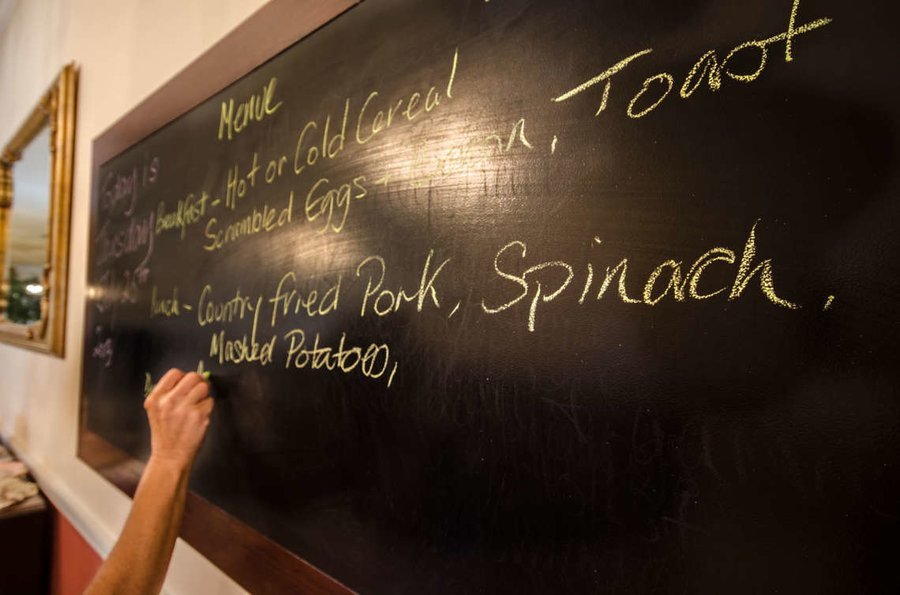 Menue
Today is
Tuesday
Breakfast - Hot or Cold Cereal
Scrambled Eggs + Bacon, Toast
Lunch - Country fried Pork, Spinach,
Mashed Potatoes,